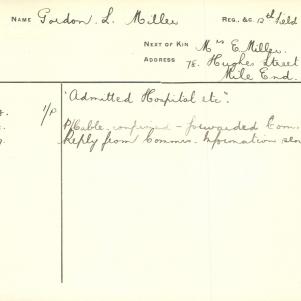 NAME Gordon. L. Miller REG. &C. 12th Field
NEXT OF KIN Mrs E. Miller.
ADDRESS 78. Hughes Street
Mile End.
"Admitted Hospital etc".
1/P
P/Cable. confirmed - forwarded Com.
Reply from Commis. Information